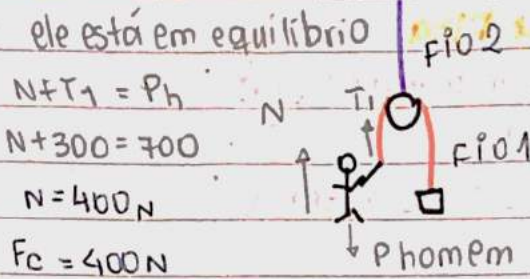 ele está em equilíbrio
N+T1 = Ph
N+300=700
N=400N
Fc =400N
FiO2
N
T1
FiO1
Phomem